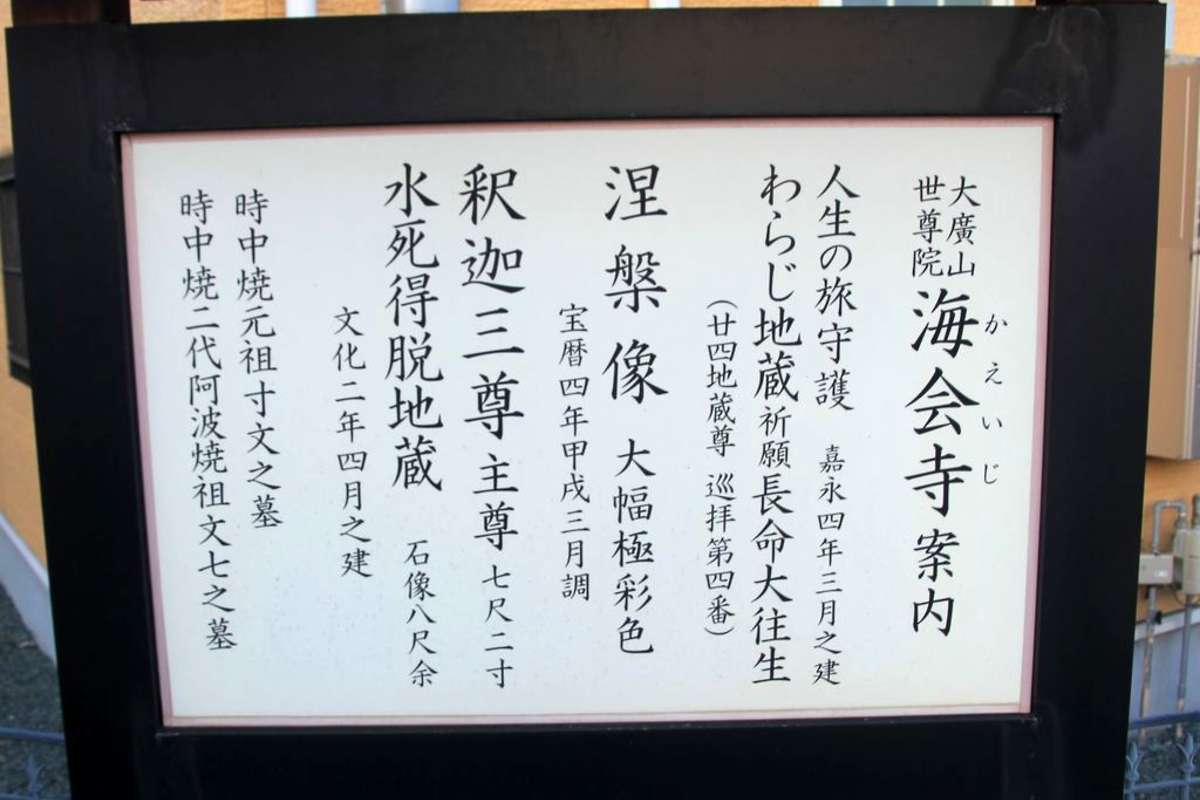 大廣山
世尊院
海会寺案内
かえいじ
人生の旅守護 嘉永四年三月之建
わらじ地蔵祈願長命大往生
(廿四地蔵尊 巡拝第四番)
涅槃像 大幅極彩色
宝暦四年甲戌三月調
釈迦三尊主尊七尺二寸
水死得脱地蔵 石像八尺余
文化二年四月之建
時中焼元祖寸文之墓
時中焼二代阿波焼祖文七之墓